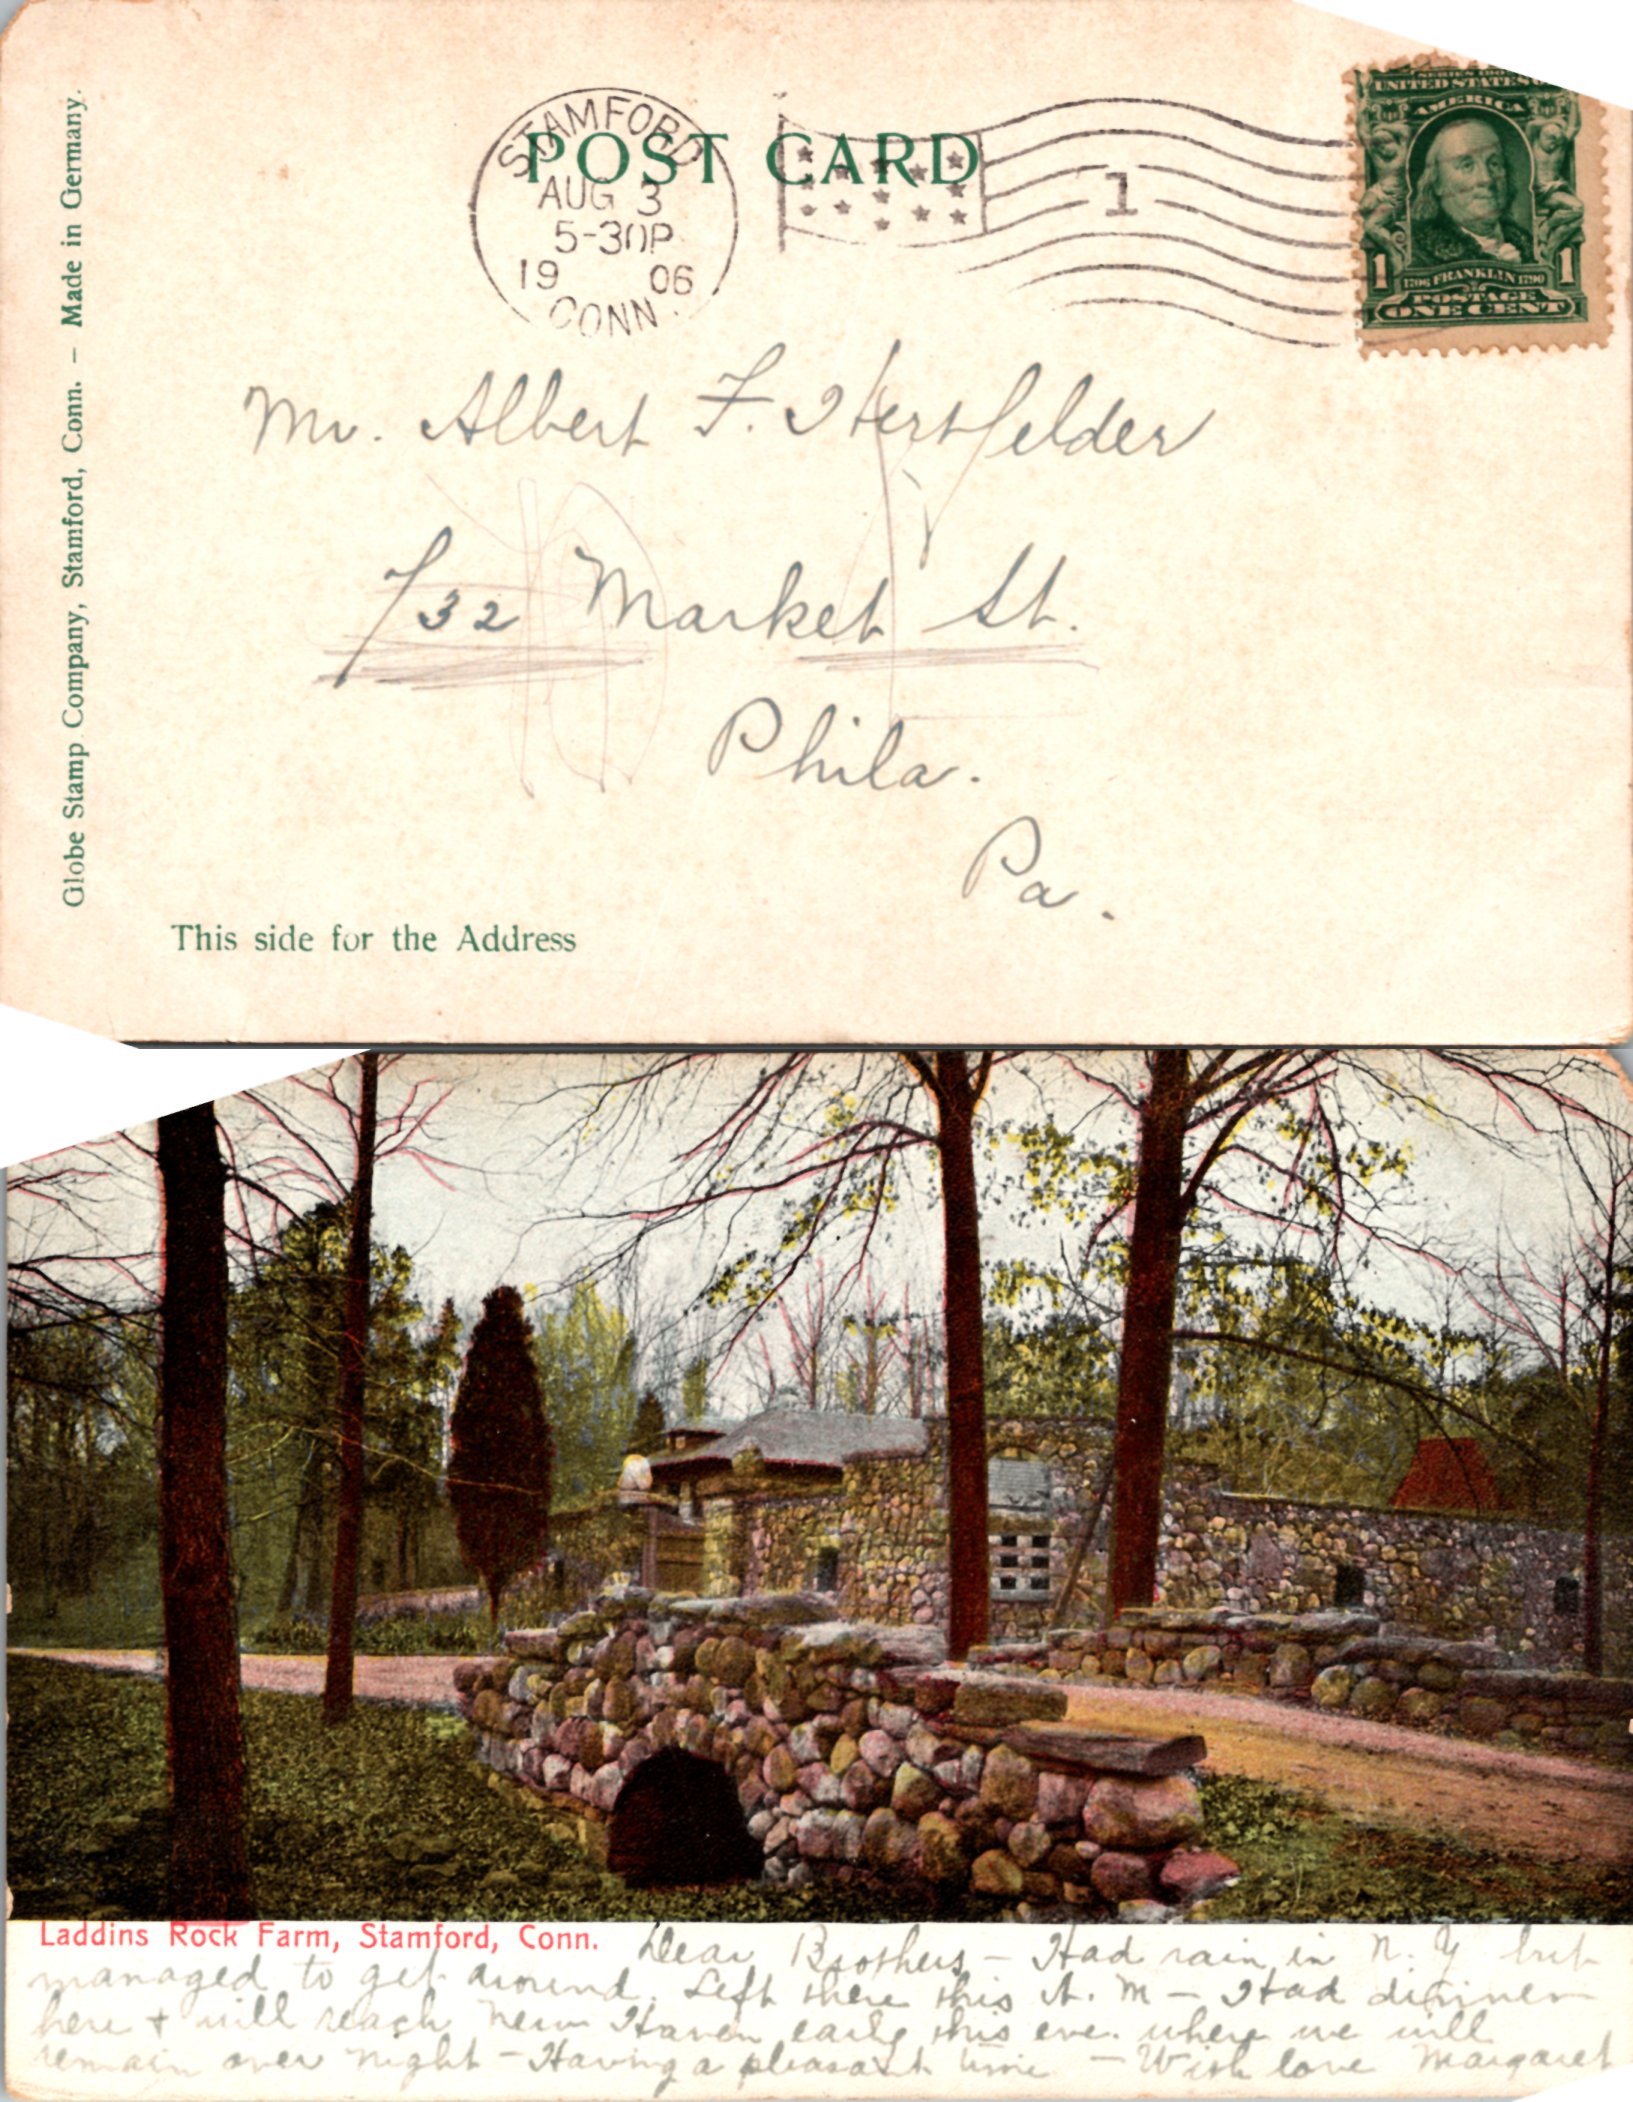 Globe Stamp Company, Stamford, Conn. – Made in Germany.
POST CARD
STAMFORD
AUG 3
5-30P
19 06
CONN.
1
SERIES 1902
UNITED STATES OF
AMERICA
1706 FRANKLIN 1790
1 1
POSTAGE
ONE CENT
Mr. Albert F. Hertfelder
732 Market St.
Phila.
Pa.
This side for the Address
Laddins Rock Farm, Stamford, Conn.
Dear Brothers – Had rain in N. Y but
managed to get around. Left there this A. M – Had dinner
here + will reach New Haven early this eve. where we will
remain over night – Having a pleasant time – With love Margaret